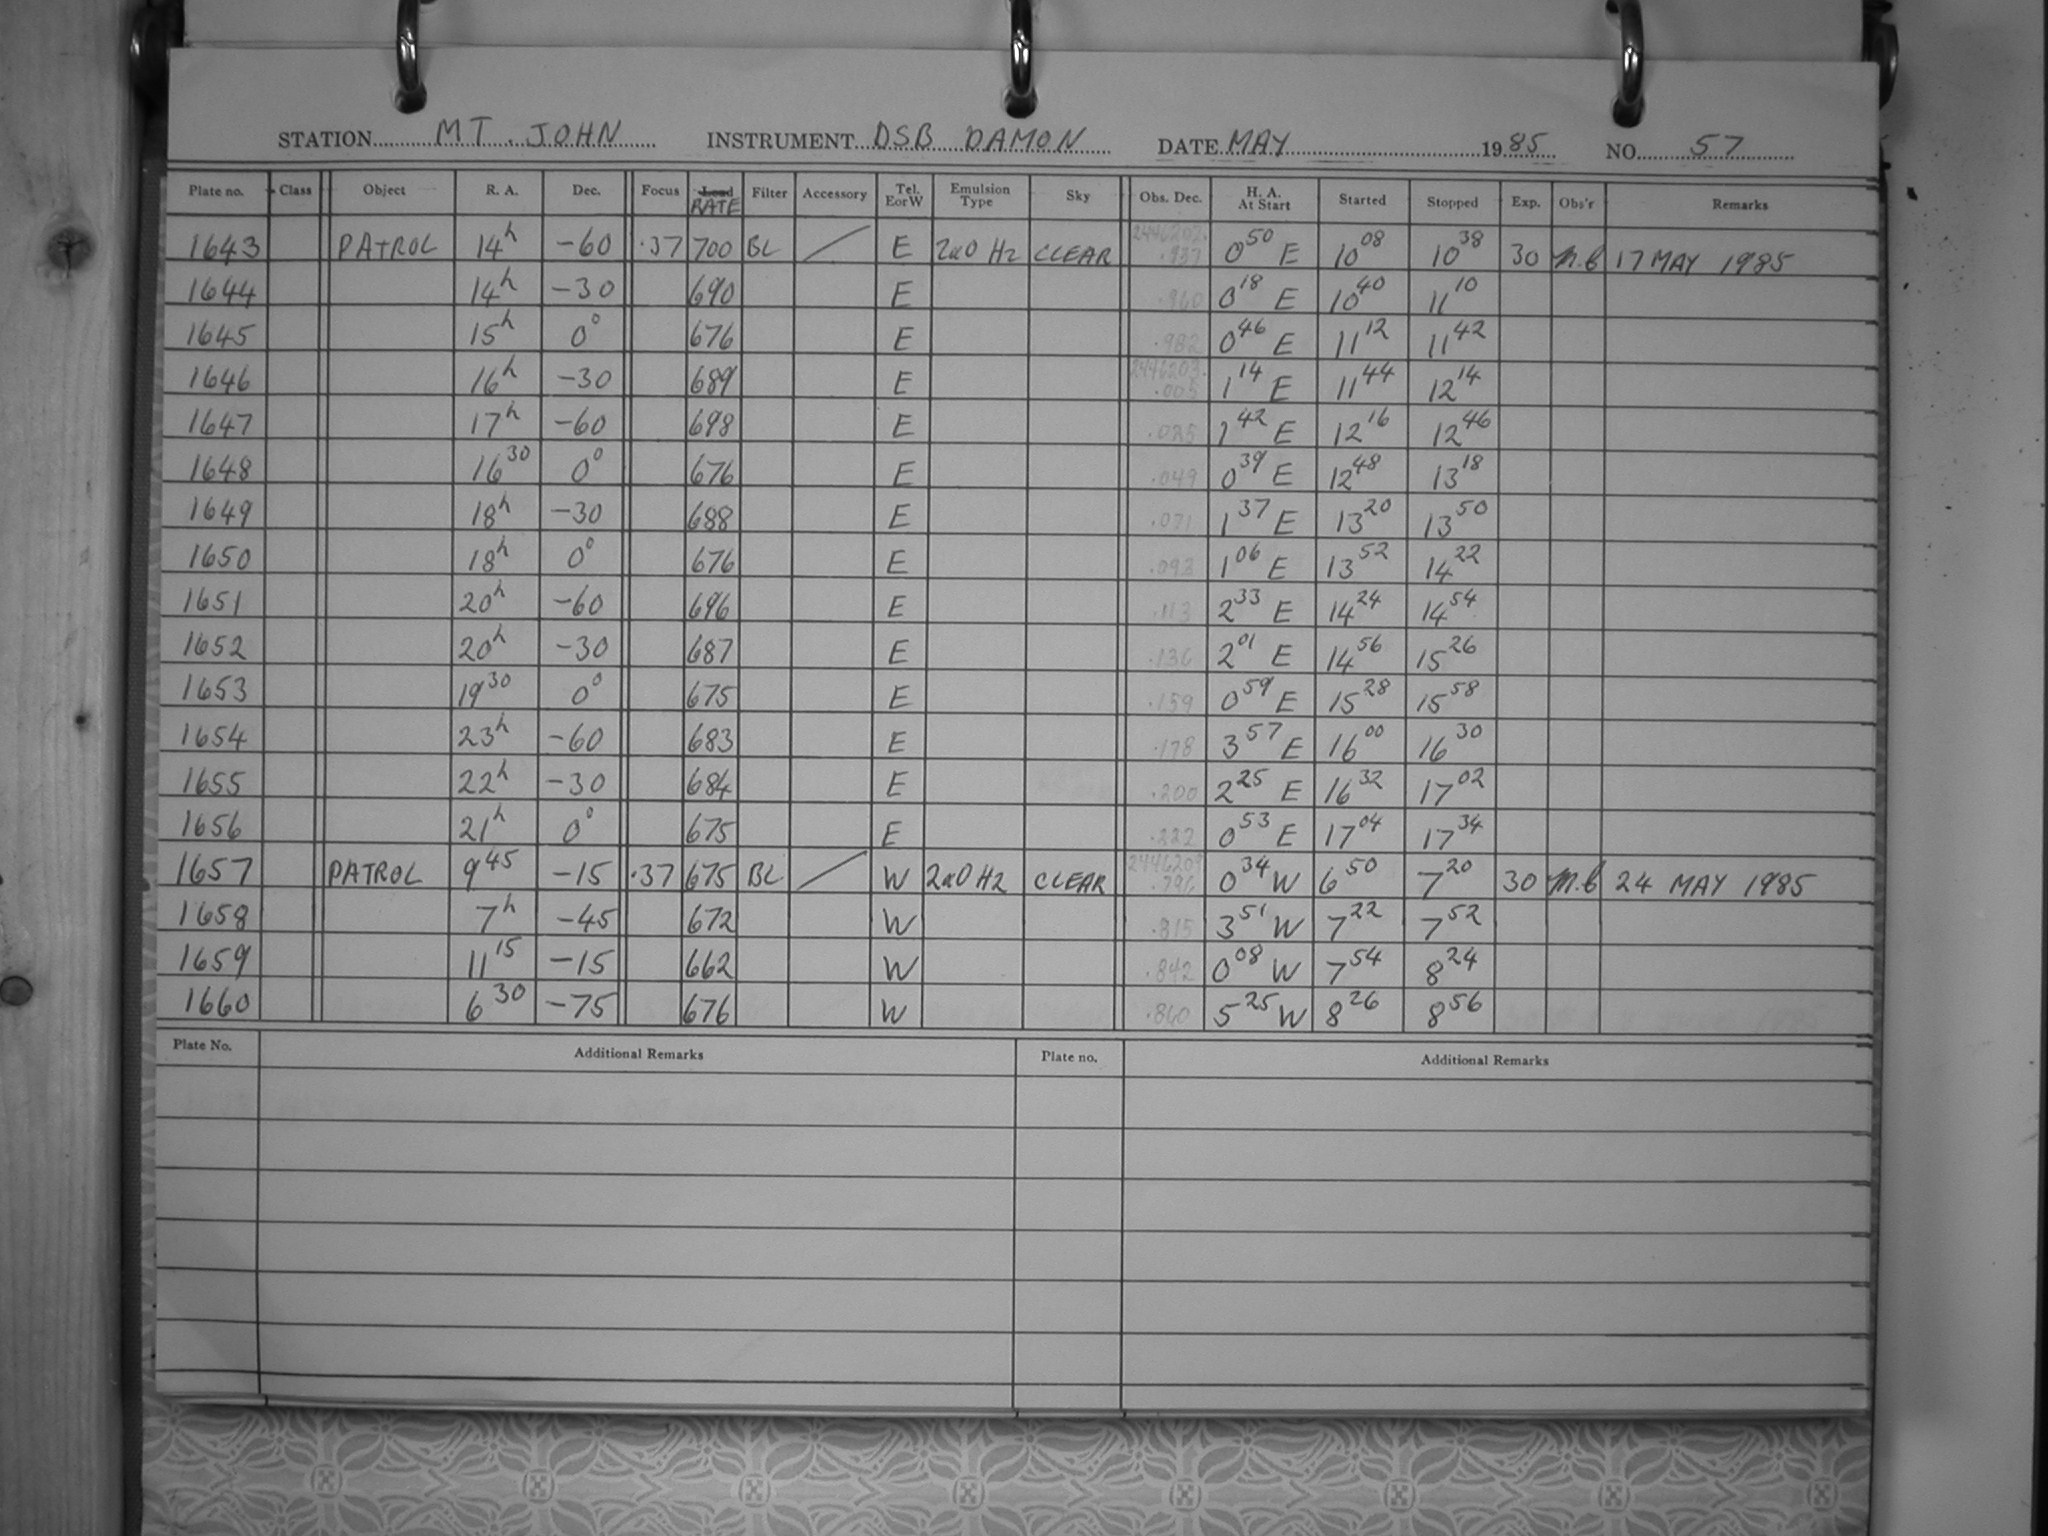 STATION MT. JOHN INSTRUMENT DSB DAMON DATE MAY 1985 NO. 57
Plate no. Class Object R. A. Dec. Focus RATE Filter Accessory Tel. EorW Emulsion Type Sky Obs. Dec. H. A. At Start Started Stopped Exp. Obs'r Remarks
1643 PATROL 14h -60 .37 700 BL / E 2aO Hz CLEAR 2446202. .937 0 50 E 10 08 10 38 30 M.B 17 MAY 1985
1644 14h -30 690 E .960 0 18 E 10 40 11 10
1645 15h 0° 676 E .982 0 46 E 11 12 11 42
1646 16h -30 689 E 2446203. .005 1 14 E 11 44 12 14
1647 17h -60 698 E .025 1 42 E 12 16 12 46
1648 16 30 0° 676 E .049 0 39 E 12 48 13 18
1649 18h -30 688 E .071 1 37 E 13 20 13 50
1650 18h 0° 676 E .093 1 06 E 13 52 14 22
1651 20h -60 696 E .113 2 33 E 14 24 14 54
1652 20h -30 687 E .136 2 01 E 14 56 15 26
1653 19 30 0° 675 E .159 0 59 E 15 28 15 58
1654 23h -60 683 E .178 3 57 E 16 00 16 30
1655 22h -30 684 E .200 2 25 E 16 32 17 02
1656 21h 0° 675 E .222 0 53 E 17 04 17 34
1657 PATROL 9 45 -15 .37 675 BL / W 2aO Hz CLEAR 0 34 W 6 50 7 20 30 M.B 24 MAY 1985
1658 7h -45 672 W .815 3 51 W 7 22 7 52
1659 11 15 -15 662 W .842 0 08 W 7 54 8 24
1660 6 30 -75 676 W .860 5 25 W 8 26 8 56
Plate No. Additional Remarks Plate no. Additional Remarks